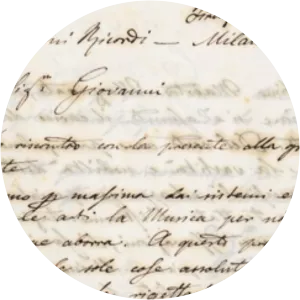 ni Ricordi — Milan
Sigʳ Giovanni
riscontro con la presente alla
te.
no p massima dai sistemi e
le arti la Musica per
ue aborra. A questi
le sole cose assolut
rigett